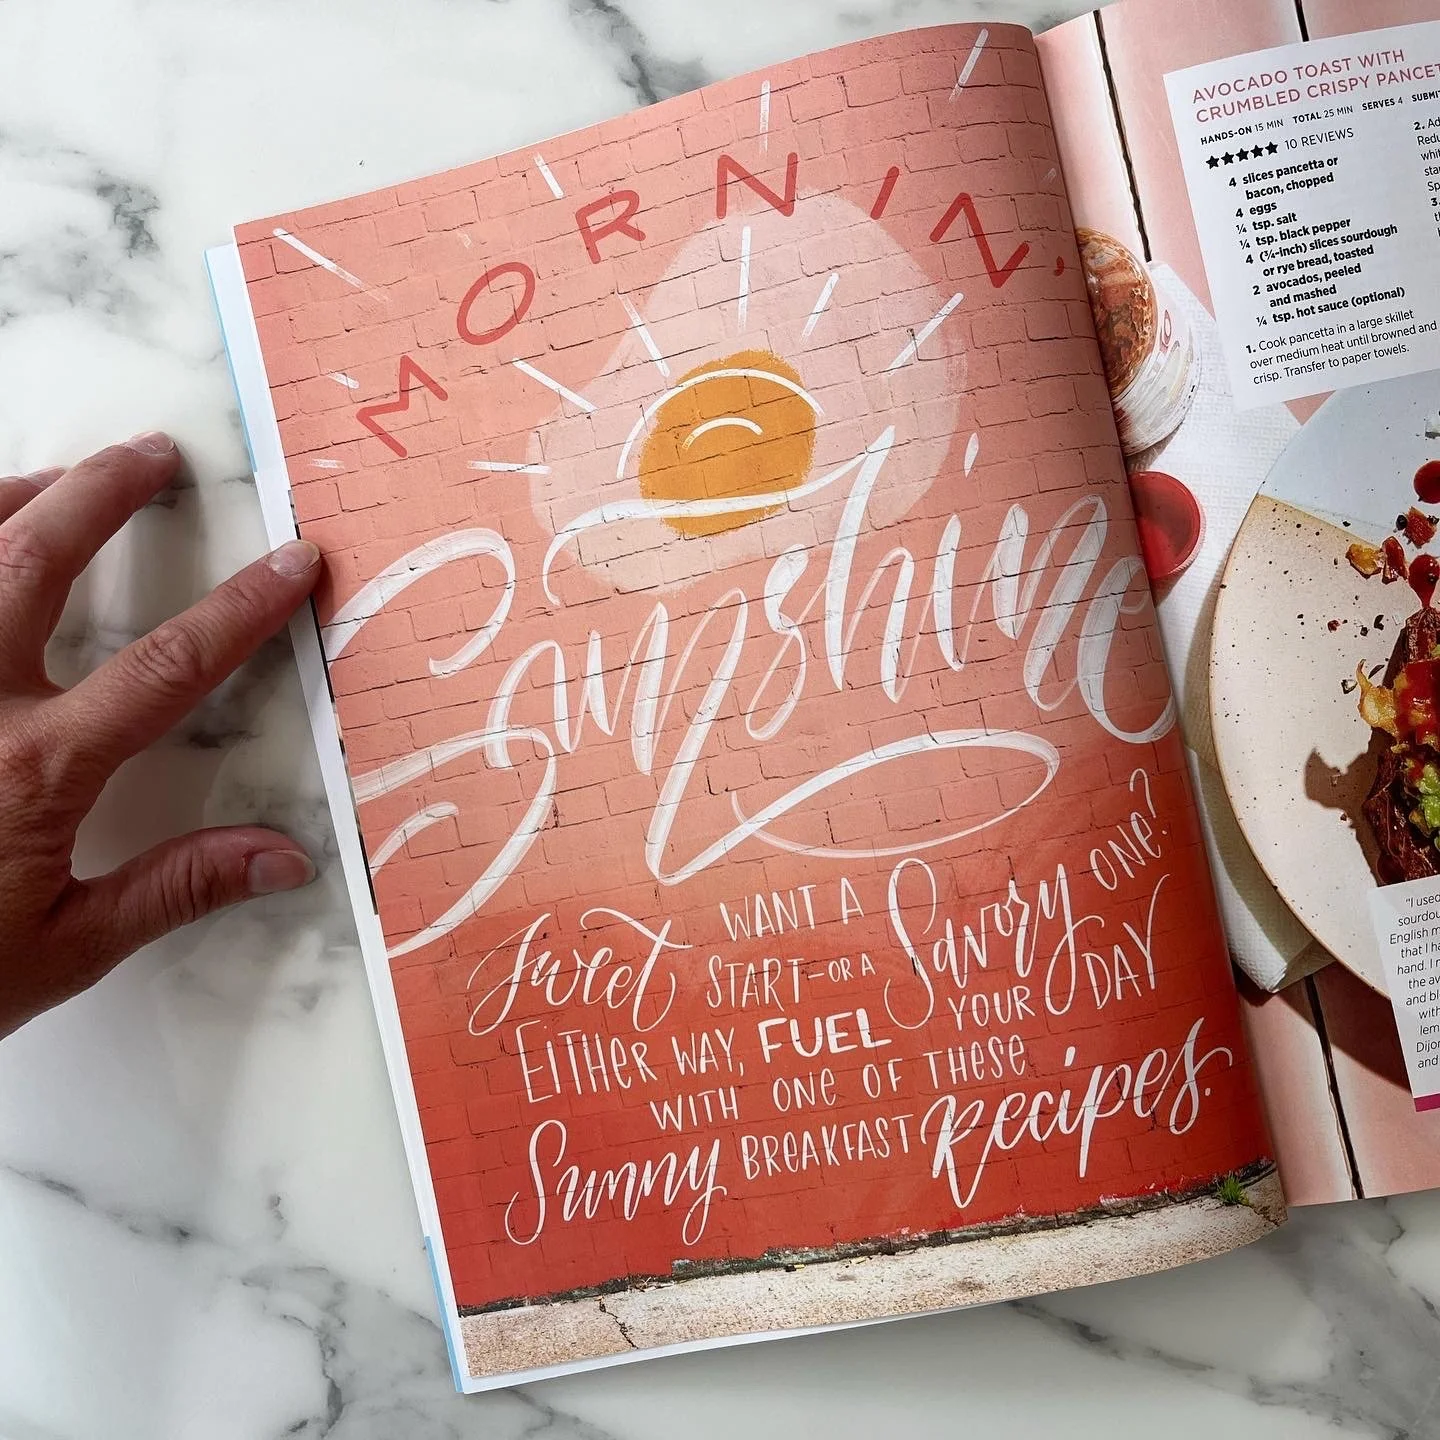 MORNIN,
Sunshine
WANT A
Sweet START—OR A Savory ONE?
EITHER WAY, FUEL YOUR DAY
WITH ONE OF THESE
Sunny BREAKFAST Recipes.
AVOCADO TOAST WITH
CRUMBLED CRISPY PANCET
HANDS-ON 15 MIN TOTAL 25 MIN SERVES 4 SUBMIT
★★★★★ 10 REVIEWS
4 slices pancetta or
bacon, chopped
4 eggs
¼ tsp. salt
¼ tsp. black pepper
4 (¾-inch) slices sourdough
or rye bread, toasted
2 avocados, peeled
and mashed
¼ tsp. hot sauce (optional)
1. Cook pancetta in a large skillet
over medium heat until browned and
crisp. Transfer to paper towels.
2. Ad
Redu
whit
sta
Sp
3.
"I used
sourdou
English m
that I ha
hand. I
the av
and bl
with
lem
Dijon
and